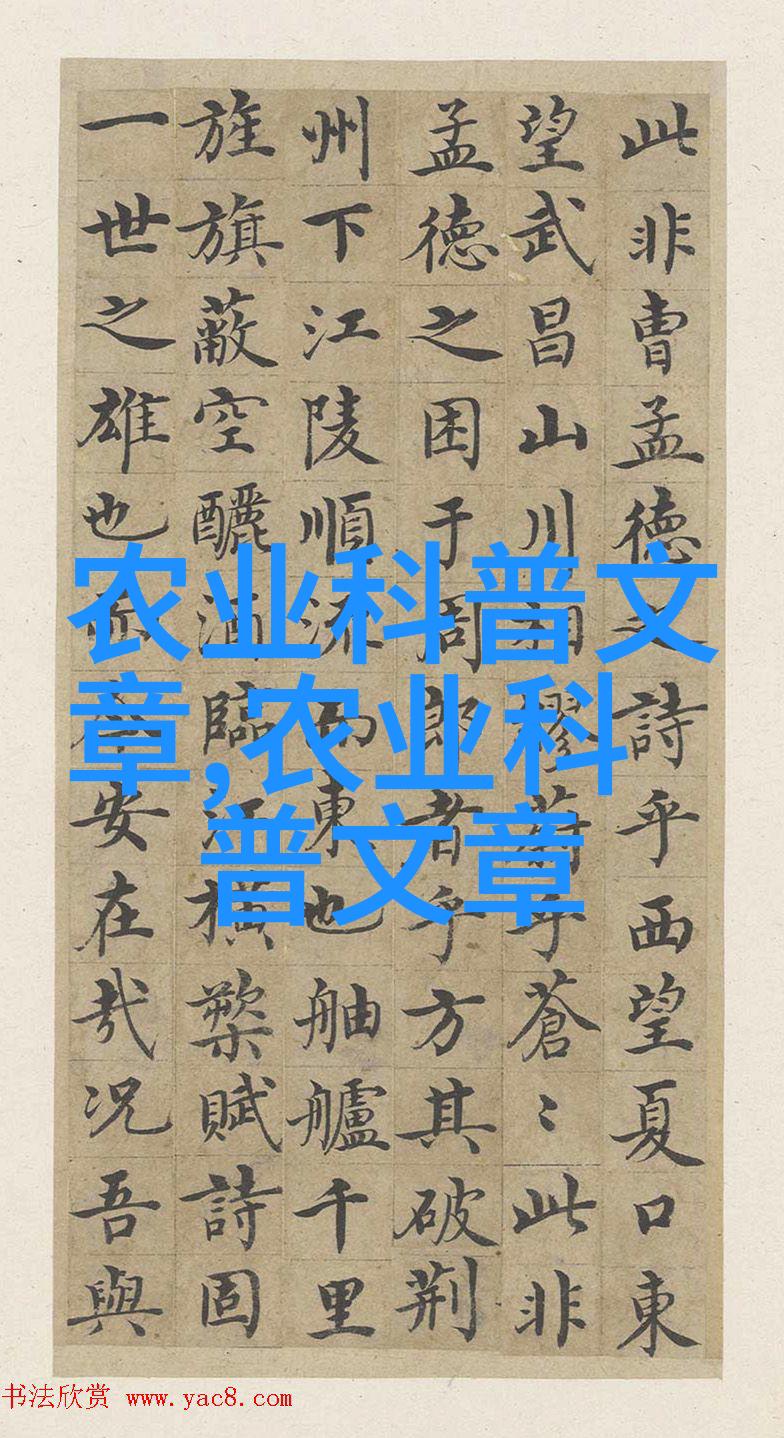 此非曹孟德之詩乎西望夏口東
望武昌山川相繆乎蒼〻此非
孟德之困于周郎者乎方其破荆
州下江陵順流而東也舳艫千里
旌旗蔽空釃酒臨江橫槊賦詩固
一世之雄也而今安在哉况吾與
农业科普文
章,农业科
普文章
书法欣赏 www.yac8.com